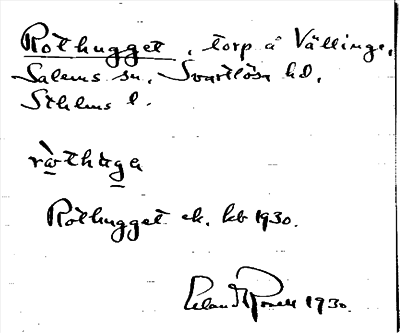 Rothugget, torp å Vällinge,
Salems sn, Svartlösa hd,
Sthlms l.
ròthugɛ
Rothugget ek. kb 1930.
1930.